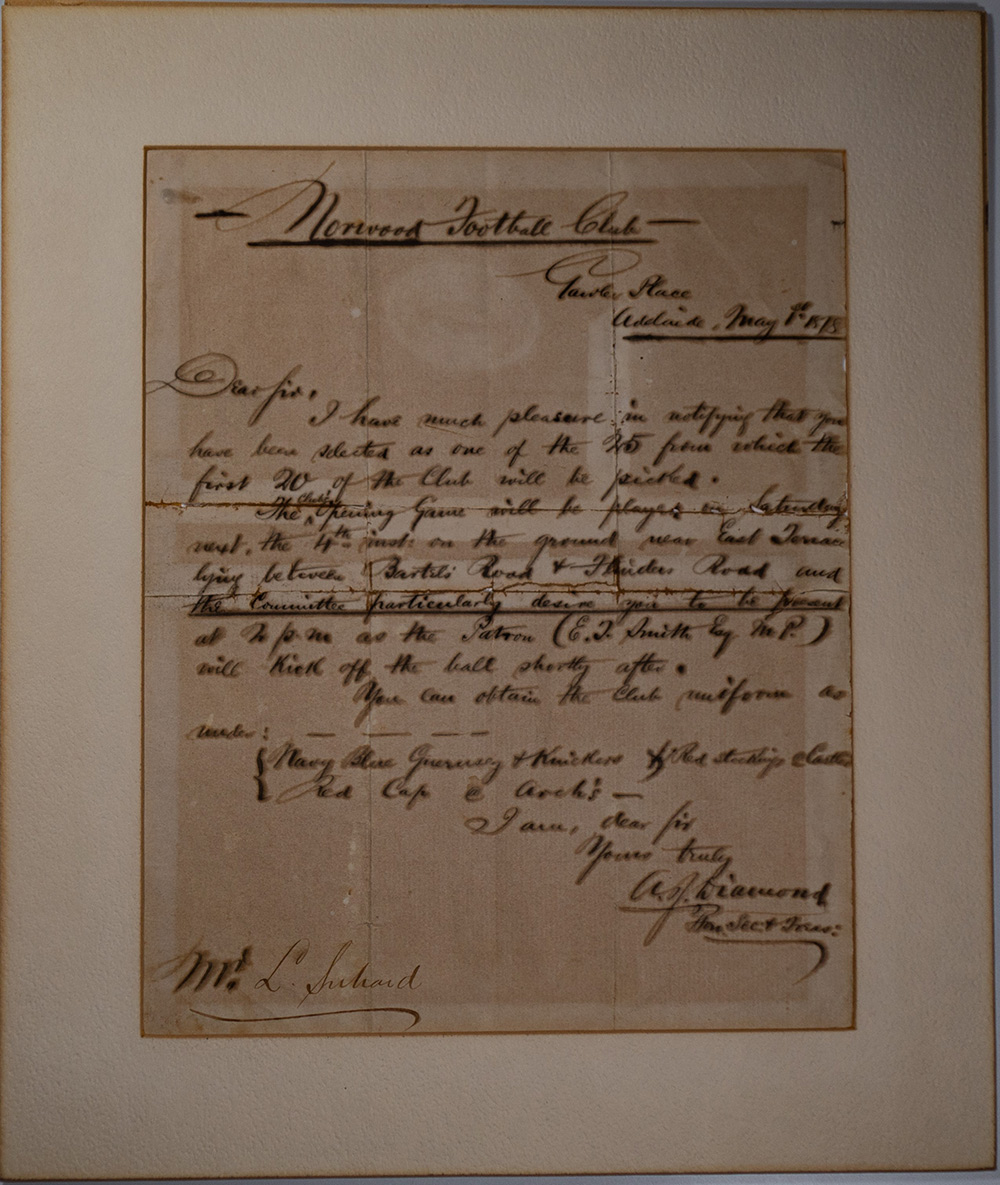 — Norwood Football Club —
Gawler Place
Adelaide, May 1st 1878
Dear Sir,
I have much pleasure in notifying that you
have been selected as one of the 25 from which the
first 20 of the Club will be picked.
The Club's Opening Game will be played on Saturday
next, the 4th inst: on the ground near East Terrace
lying between Bartels Road & Flinders Road and
the Committee particularly desire you to be present
at 2 p.m as the Patron (E.T. Smith Esq M.P.)
will Kick off the ball shortly after.
You can obtain the Club uniform as
under: — — —
{Navy Blue Guernsey & Knickers & Red stockings
Red Cap @ —
I am, dear Sir
Yours truly
A.J. Diamond
Hon. Sec. & Treas:
Mr. L.